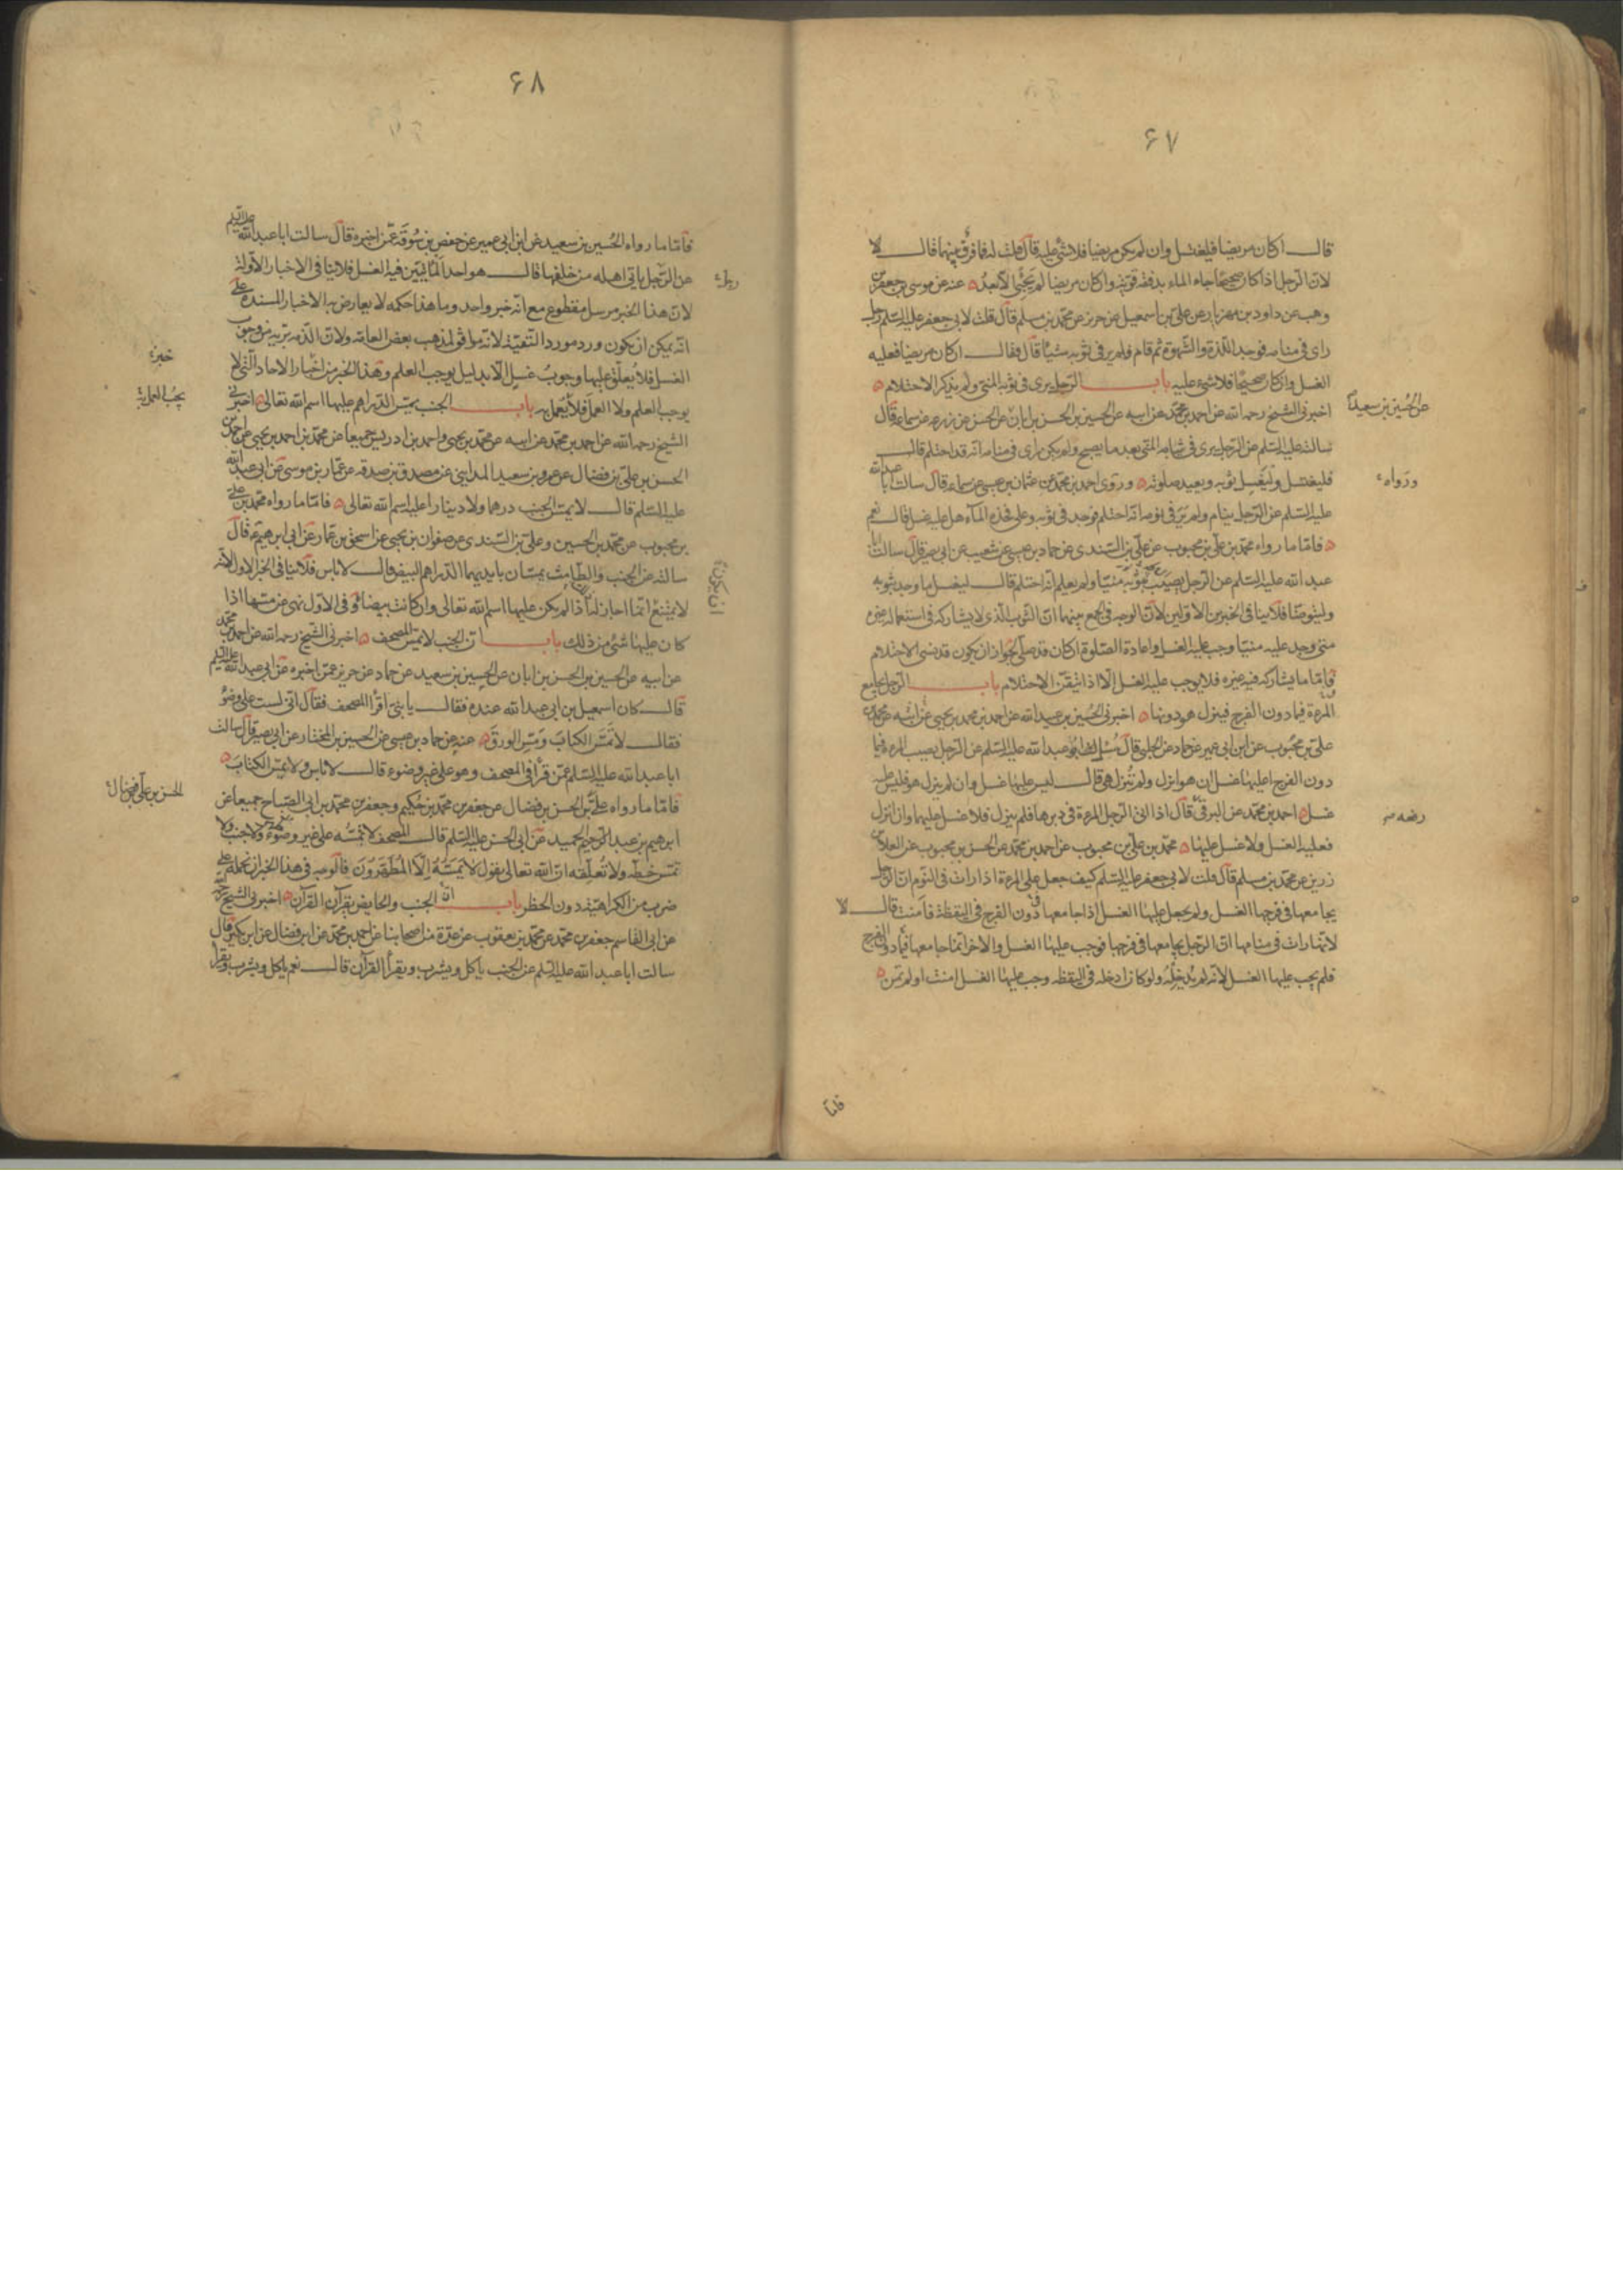 ۶۷
قالـــ ان كان مريضا فليغتسل وان لم يكن مريضا فلا شئ عليه قال قلت له فما فرق بينهما فقالـــ لا
لان الرجل اذا كان صحيحا جاء الماء بدفقة قوية وان كان مريضا لم يجئ الا بعد ه عنه عن موسى بن جعفر بن
وهب عن داود بن مهزيار عن علي بن اسمعيل عن حريز عن محمد بن مسلم قال قلت لابي جعفر عليه السلم رجل
راى في منامه فوجد اللذة والشهوة ثم قام فلم ير في ثوبه شيئا قال فقالـــ ان كان مريضا فعليه
الغسل وان كان صحيحا فلا شئ عليه بابـــ الرجل يرى في ثوبه المنى ولم يذكر الاحتلام ه
اخبرني الشيخ رحمه الله عن احمد بن محمد عن ابيه عن الحسين بن الحسن بن ابان عن الحسن عن زرعه عن سماعة قال
عن الحسين بن سعيد
سالته عليه السلم عن الرجل يرى في ثيابه المنى بعد ما يصبح ولم يكن راى في منامه انه قد احتلم قالـــ
فليغتسل وليغسل ثوبه ويعيد صلوته ه وروى احمد بن محمد عن عثمان بن عيسى عن سماعة قال سالت ابا عبد الله
ورواه
عليه السلم عن الرجل ينام ولم ير في نومه انه احتلم فوجد في ثوبه وعلى فخذه الماء هل عليه غسل قالـــ نعم
ه فاما ما رواه محمد بن علي بن محبوب عن علي بن السندي عن حماد بن عيسى عن شعيب عن ابي بصير قال سالت ابا
عبد الله عليه السلم عن الرجل يصيب بثوبه منيا ولم يعلم انه احتلم قالـــ ليغسل ما وجد بثوبه
وليتوضا فلا ينافى الخبرين الاولين لان الوجه في الجمع بينهما ان الثوب الذي لا يشاركه في استعماله غيره
متى وجد عليه منيا وجب عليه الغسل واعادة الصلوة ان كان قد صلى لجواز ان يكون قد نسى الاحتلام
فاما ما يشاركه فيه غيره فلا يوجب عليه الغسل الا اذا تيقن الاحتلام بابـــ الرجل يجامع
المرءة فيما دون الفرج فينزل هو دونها ه اخبرني الحسين بن عبيد الله عن احمد بن محمد بن يحيى عن ابيه عن محمد بن
علي بن محبوب عن ابن ابي عمير عن حماد عن الحلبي قال سئل ابو عبد الله عليه السلم عن الرجل يصيب المرءة فيما
دون الفرج اعليها غسل ان هو انزل ولم تنزل هي قالـــ ليس عليها غسل وان لم ينزل هو فليس عليه
غسل ه احمد بن محمد عن البرقي رفعه قال اذا اتى الرجل المرءة في دبرها فلم ينزل فلا غسل عليهما وان انزل
فعليه الغسل ولا غسل عليها ه محمد بن علي بن محبوب عن احمد بن محمد عن الحسن بن محبوب عن العلا بن
رزين عن محمد بن مسلم قال قلت لابي جعفر عليه السلم كيف جعل على المرءة اذا رات في النوم ان الرجل
يجامعها في فرجها الغسل ولم يجعل عليها الغسل اذا جامعها دون الفرج في اليقظة فامنت قالـــ لا
لانها رات في منامها ان الرجل يجامعها في فرجها فوجب عليها الغسل والاخر انما جامعها فيما دون الفرج
فلم يجب عليها الغسل لانه لم يدخله ولو كان ادخله في اليقظه وجب عليها الغسل امنت او لم تمن ه
فاما
۶۸
فاما ما رواه الحسين بن سعيد عن ابن ابي عمير عن حفص بن سوقة عمن اخبره قال سالت ابا عبد الله عليه السلم
عن الرجل ياتي اهله من خلفها قالـــ هو احد المأتيين فيه الغسل فلا ينافى الاخبار الاولة
لان هذا الخبر مرسل مقطوع مع انه خبر واحد وما هذا حكمه لا يعارض به الاخبار المسندة على
انه يمكن ان يكون ورد مورد التقية لانه موافق لمذهب بعض العامه ولان الذمه بريه من وجوب
خبر
الغسل فلا يعلق عليها وجوب غسل الا بدليل يوجب العلم وهذا الخبر من اخبار الاحاد التي لا
يوجب العلم ولا العمل فلا يعمل به بابـــ الجنب يمس الدراهم عليها اسم الله تعالى ه اخبرني
يجب العمل به
الشيخ رحمه الله عن احمد بن محمد عن ابيه عن محمد بن يحيى واحمد بن ادريس جميعا عن محمد بن احمد بن يحيى عن احمد بن
الحسن بن علي بن فضال عن عمرو بن سعيد المدايني عن مصدق بن صدقه عن عمار بن موسى عن ابي عبد الله
عليه السلم قالـــ لا يمس الجنب درهما ولا دينارا عليه اسم الله تعالى ه فاما ما رواه محمد بن علي
بن محبوب عن محمد بن الحسين وعلي بن السندى عن صفوان بن يحيى عن اسحق بن عمار عن ابي ابرهيم ع قال
سالته عن الجنب والطامث يمسان بايديهما الدراهم البيض قالـــ لا باس فلا ينافى الخبر الاول لانه
لا يمتنع انما اجاز له اذا لم يكن عليها اسم الله تعالى وان كانت بيضا وفي الاول نهى عن مسها اذا
ان يكون
كان عليها شئ من ذلك بابـــ ان الجنب لا يمس المصحف ه اخبرني الشيخ رحمه الله عن احمد بن محمد
عن ابيه عن الحسين بن الحسن بن ابان عن الحسين بن سعيد عن حماد عن حريز عمن اخبره عن ابي عبد الله عليه السلم
قالـــ كان اسمعيل بن ابي عبد الله عنده فقالـــ يا بنى اقرأ المصحف فقال انى لست على وضوء
فقالـــ لا تمس الكتاب ومس الورق ه عنه عن حماد بن عيسى عن الحسين بن المختار عن ابي بصير قال سالت
ابا عبد الله عليه السلم عمن قرأ في المصحف وهو على غير وضوء قالـــ لا باس ولا يمس الكتاب ه
الحسن بن علي بن فضال
فاما ما رواه علي بن الحسن بن فضال عن جعفر بن محمد بن حكيم وجعفر بن محمد بن ابي الصباح جميعا عن
ابرهيم بن عبد الحميد عن ابي الحسن عليه السلم قالـــ المصحف لا تمسه على غير وضوء ولا جنبا ولا
تمس خطه ولا تعلقه ان الله تعالى يقول لا يمسه الا المطهرون فالوجه في هذا الخبر ان نحمله على
ضرب من الكراهية دون الحظر بابـــ ان الجنب والحايض يقرآن القرآن ه اخبرني الشيخ رحمه الله
عن ابي القاسم جعفر بن محمد عن محمد بن يعقوب عن عدة من اصحابنا عن احمد بن محمد عن ابن فضال عن ابن بكير قال
سالت ابا عبد الله عليه السلم عن الجنب ياكل ويشرب ويقرأ القرآن قالـــ نعم ياكل ويشرب ويقرأ